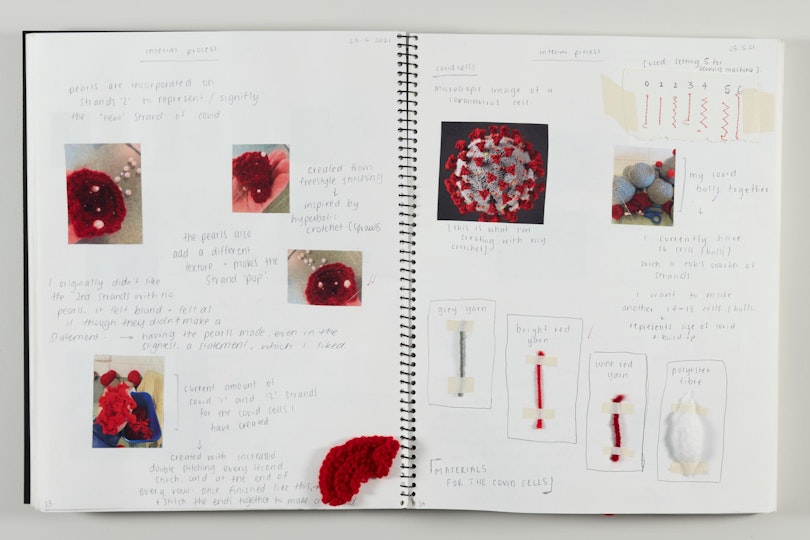 interim process
25.5.2021
pearls are incorporated on
strands '2' to represent/signifly
the "new" strand of covid
created from
freestyle stitching
↓
inspired by
hyperbolic
crochet
the pearls also
add a different
texture + makes the
strand 'pop'
I originally didn't like
the 2nd strands with no
pearls, it felt bland + felt as
if though they didn't make a
statement. → having the pearls made, even in the
a statement, which I liked
current amount of
covid '1' and '2' strands
for the covid cells I
have created
↓
created with increased
double stitching every second
and at the end of
every row. once finished like this,
+ stitch the ends together to make
interim process
25.5.21
covid cells
microscopic image of a
coronavirus cell.
(used setting 5 for
machine).
0 1 2 3 4 5 6
(this is what I'm
creating with my
crochet)
my covid
balls together
↓
I currently have
16 cells (balls)
with a
strands.
I want to make
another 14-18 cells/balls
↓
represents size of covid
+ build up
grey yarn
bright red
yarn
wine red
yarn
polyester
fibre
MATERIALS
FOR THE COVID CELLS